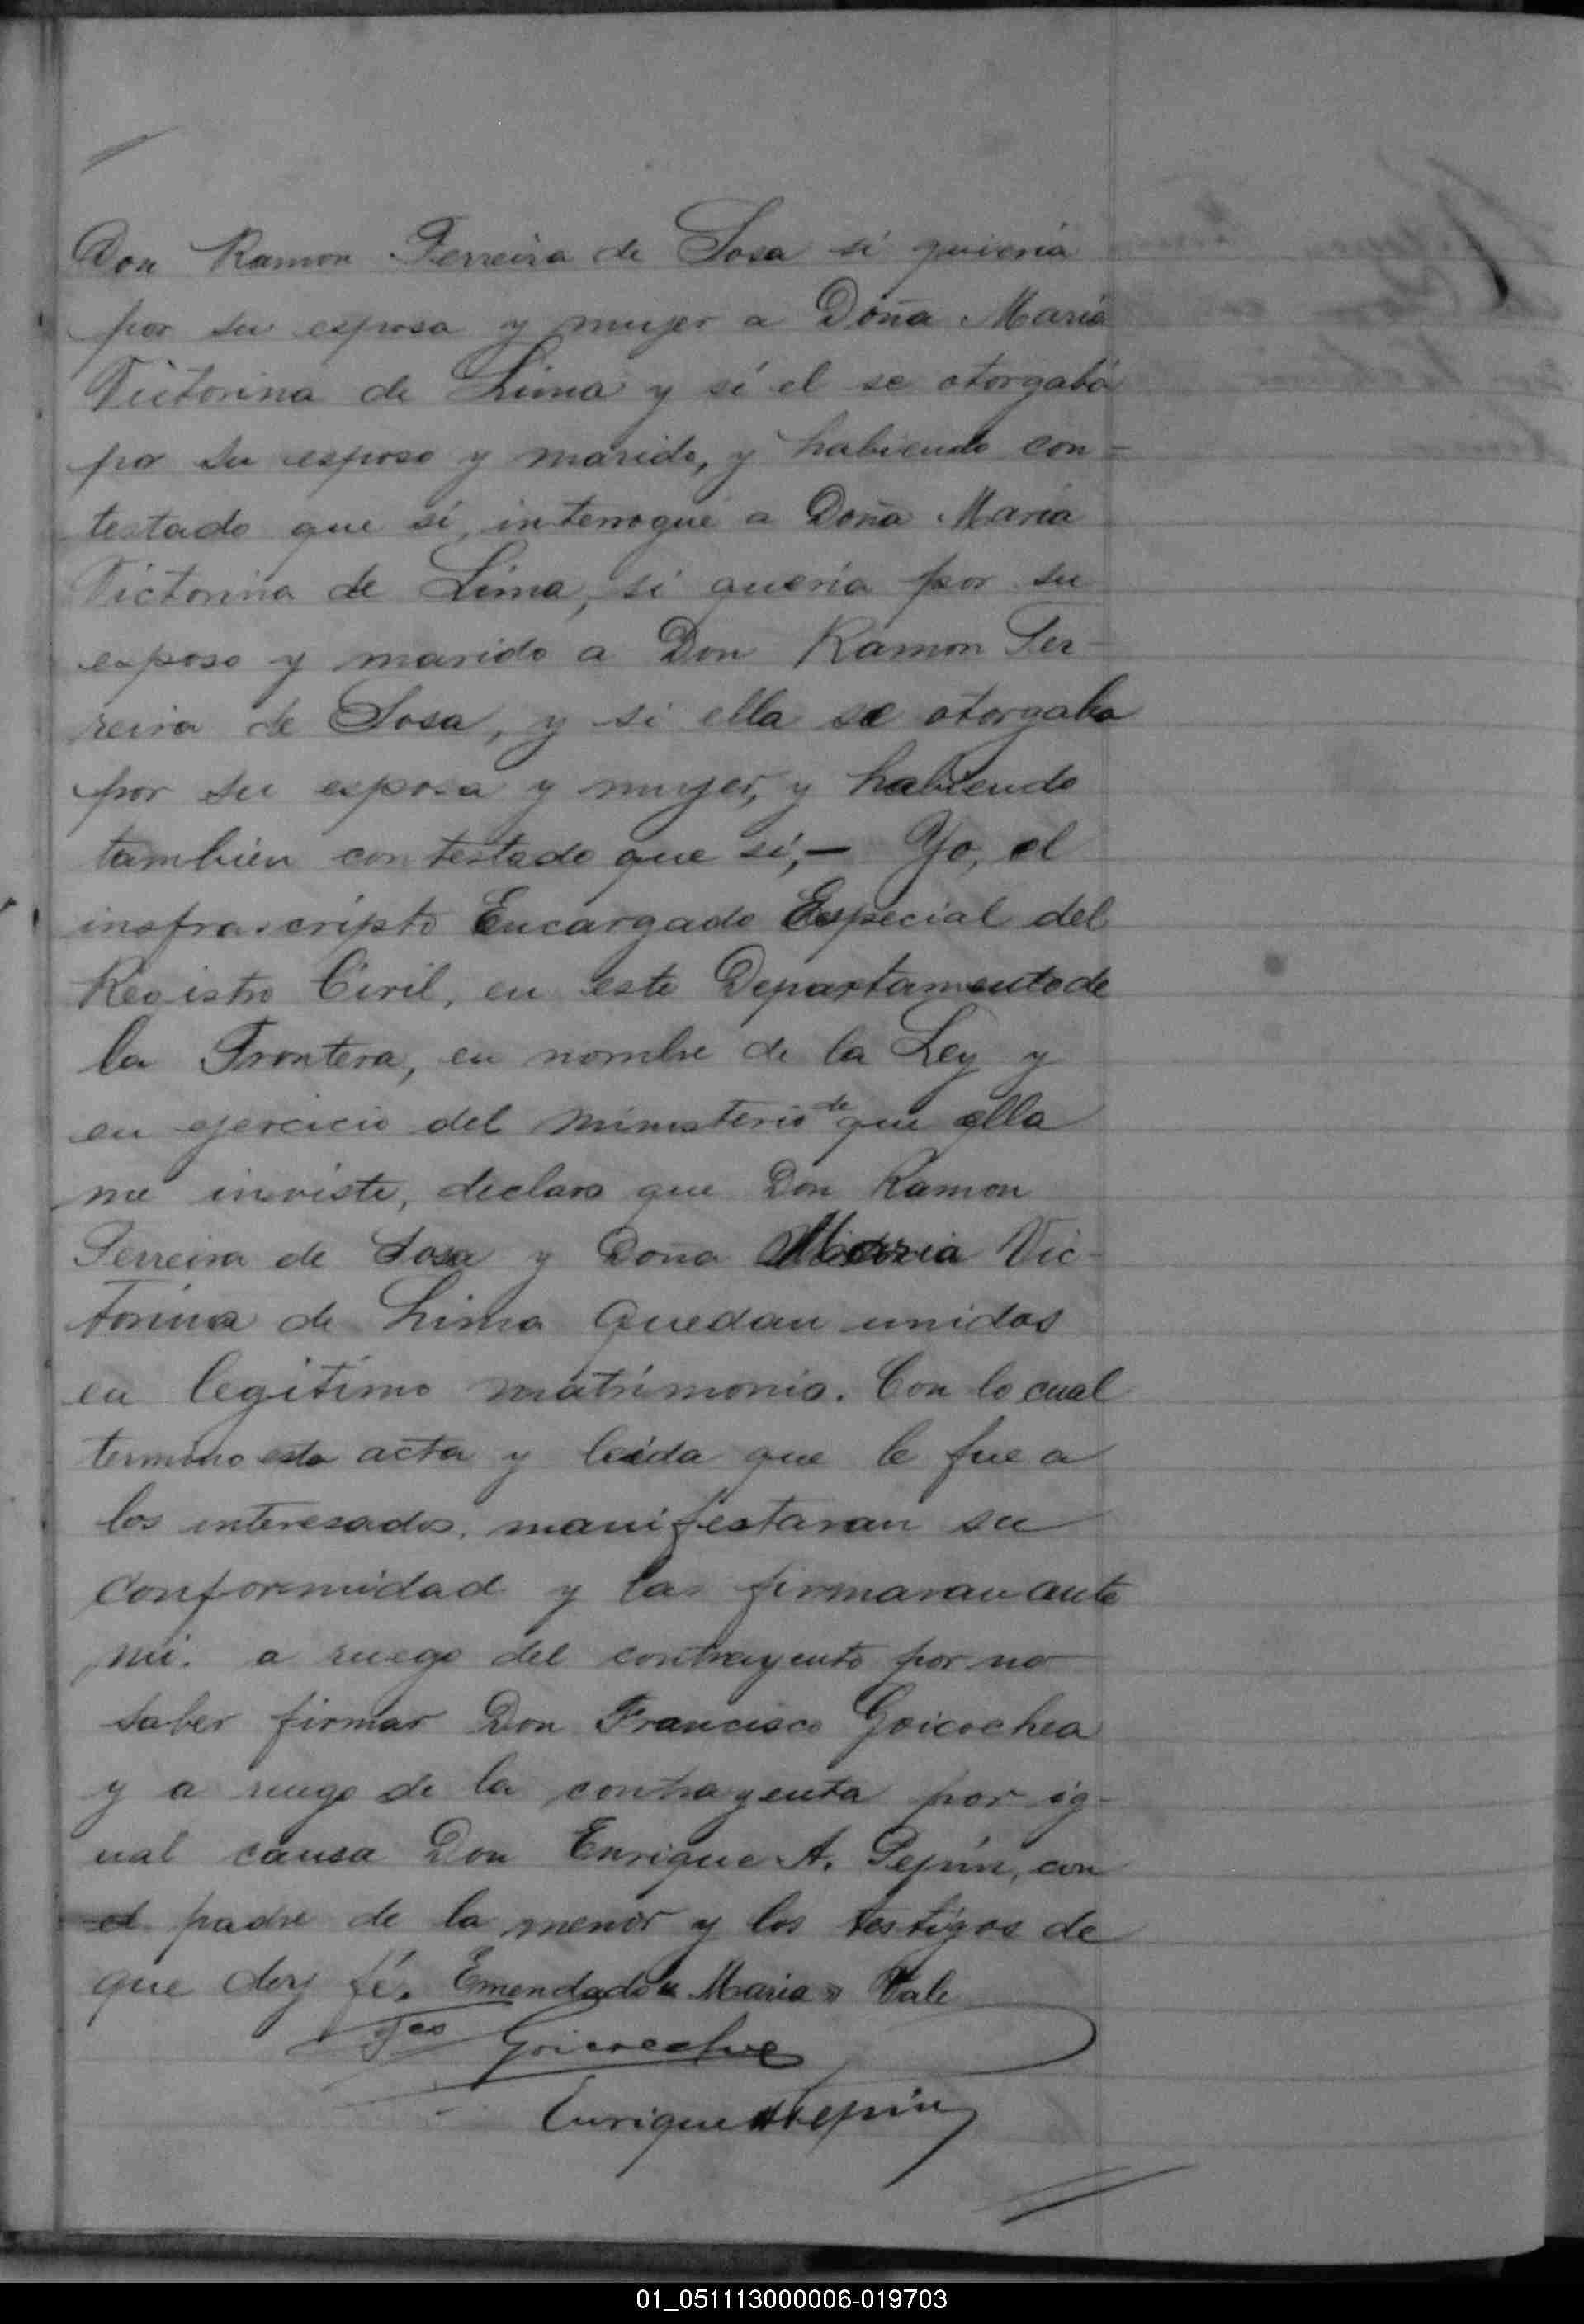 Don Ramon Ferreira de Sosa si quieria
por su esposa y mujer a Doña Maria
Victorina de Lima y sí el se otorgaba
por su esposo y marido, y habiendo con-
testado que sí, interrogué a Doña Maria
Victorina de Lima, si queria por su
esposo y marido a Don Ramon Fer-
reira de Sosa, y si ella se otorgaba
por su esposa y mujer, y habiendo
tambien contestado que sí,— Yo, el
insfrascripto Encargado Especial del
Registro Civil, en este Departamento de
la Frontera, en nombre de la Ley y
en ejercicio del ministerio de que ella
me inviste, declaro que Don Ramon
Ferreira de Sosa y Doña Maria Vic-
torina de Lima quedan unidos
en legítimo matrimonio. Con lo cual
termino esta acta y leida que le fue a
los interesados, manifestaran su
conformidad y la firmaran ante
mi. a ruego del contrayente por no
saber firmar Don Francisco Goicochea
y a ruego de la contrayenta por ig-
ual causa Don Enrique A. Pepín, con
el padre de la menor y los testigos de
que doy fé. Emendado "Maria" Vale
Fco Goicoechea
Enrique A Pepin
01_051113000006-019703